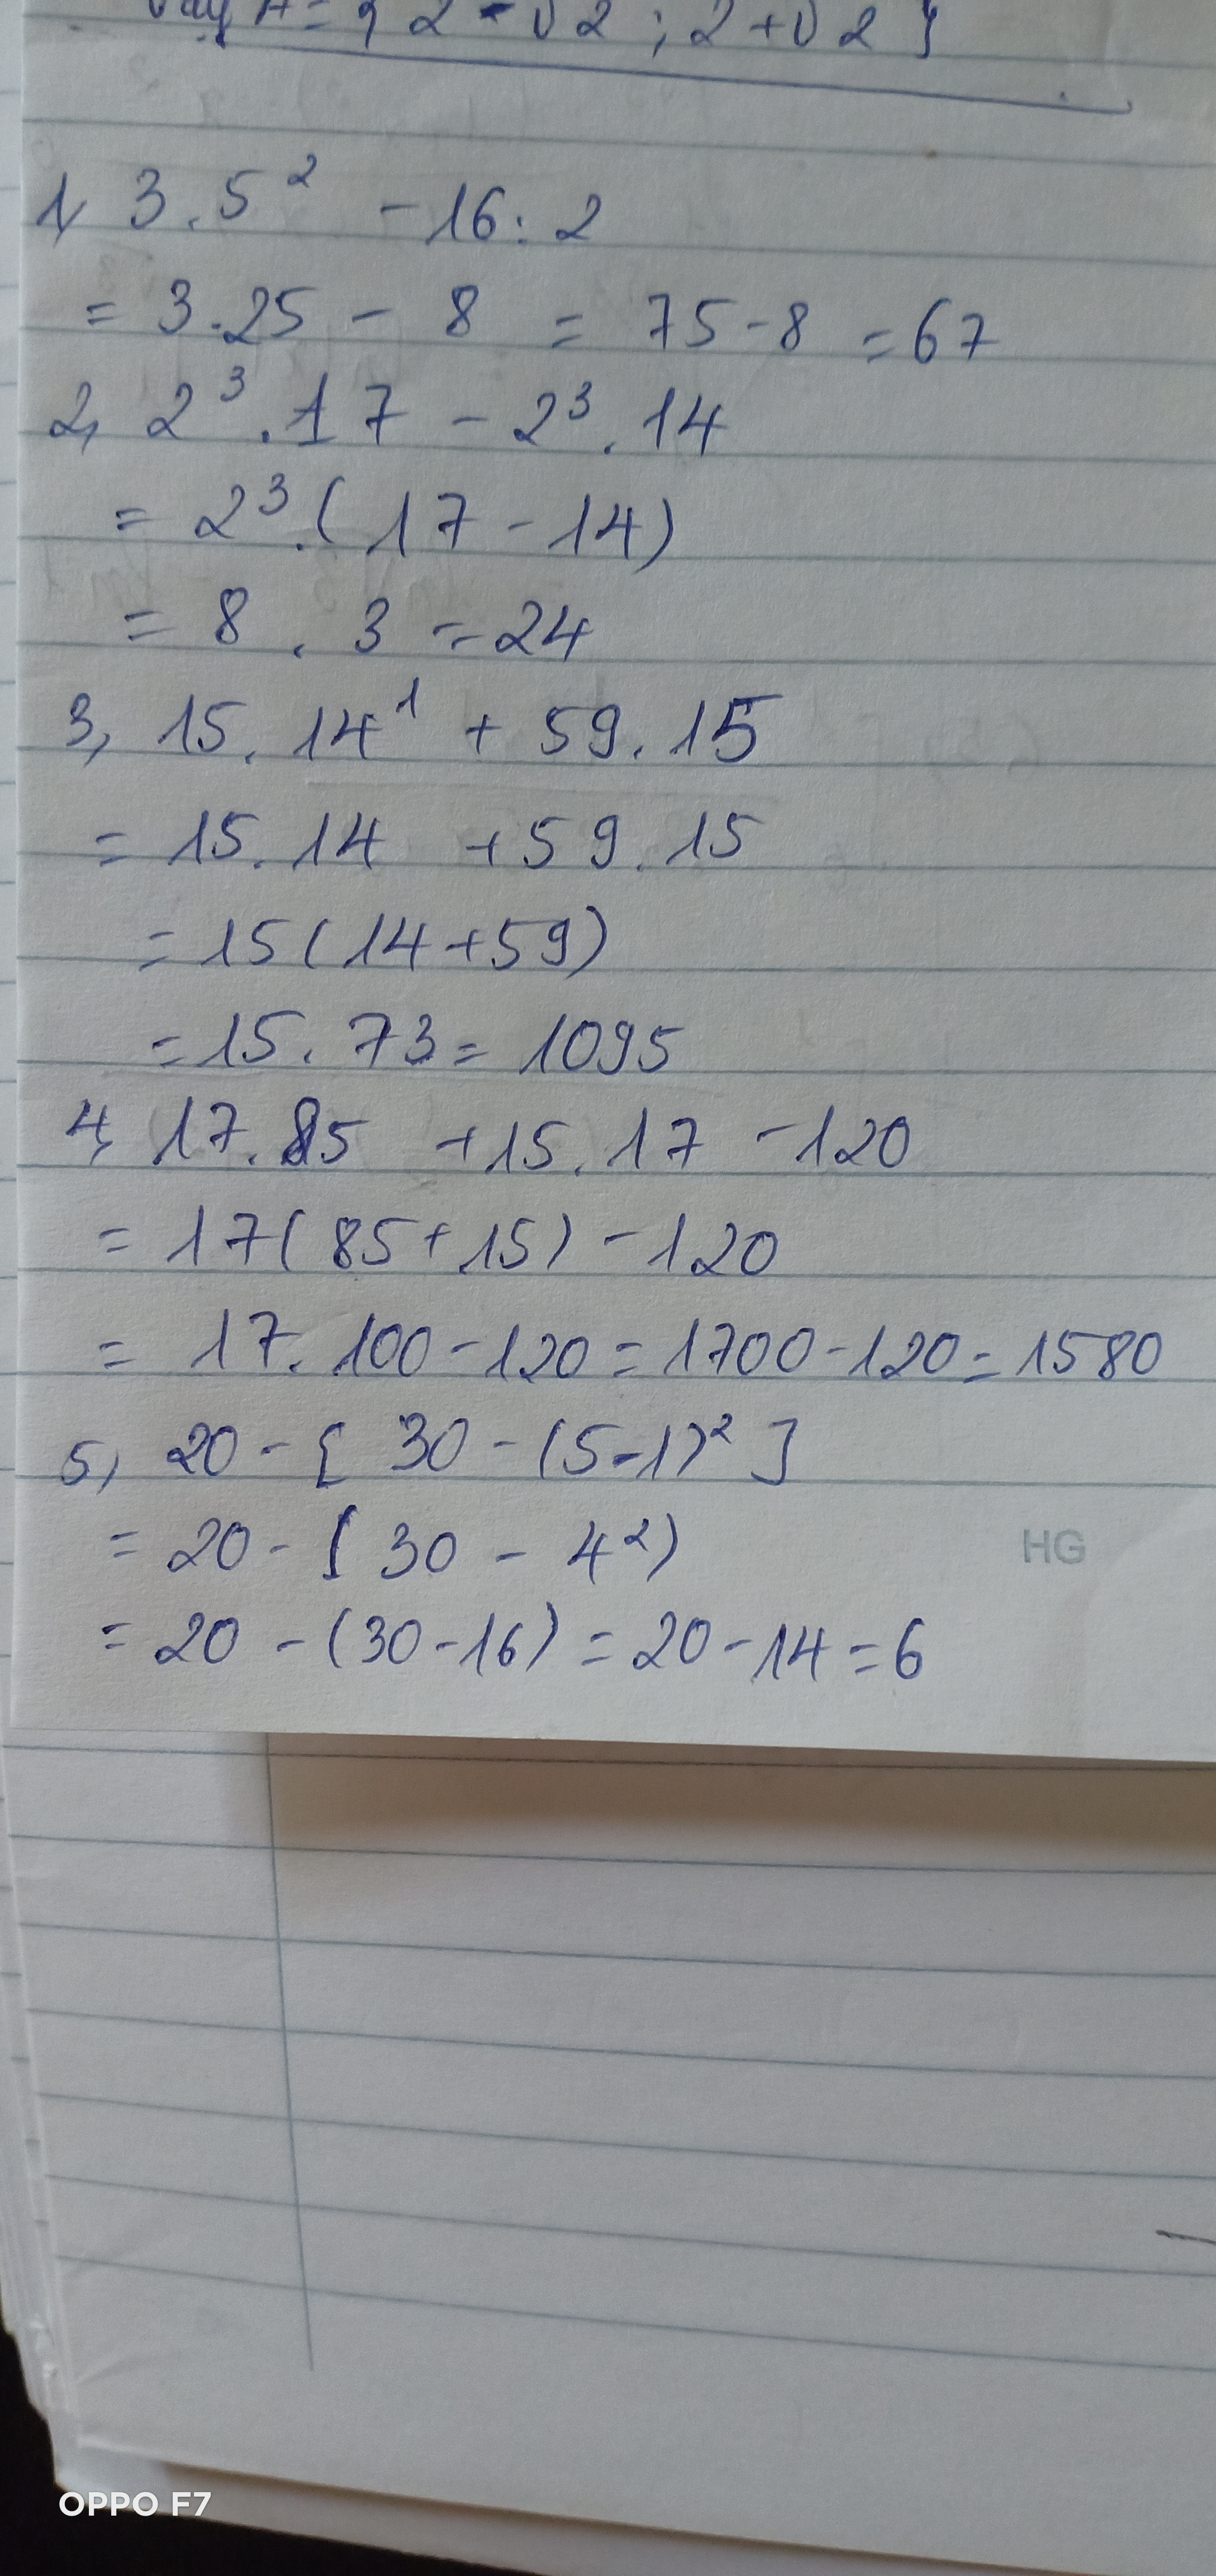 Vậy A = { 2 - √2 ; 2 + √2 }
1, 3 . 5² - 16 : 2
= 3 . 25 - 8 = 75 - 8 = 67
2, 2³ . 17 - 2³ . 14
= 2³ . ( 17 - 14 )
= 8 . 3 = 24
3, 15 . 14¹ + 59 . 15
= 15 . 14 + 59 . 15
= 15 ( 14 + 59 )
= 15 . 73 = 1095
4, 17 . 85 + 15 . 17 - 120
= 17 ( 85 + 15 ) - 120
= 17 . 100 - 120 = 1700 - 120 = 1580
5, 20 - [ 30 - ( 5 - 1 )² ]
= 20 - [ 30 - 4² )
HG
= 20 - ( 30 - 16 ) = 20 - 14 = 6
OPPO F7